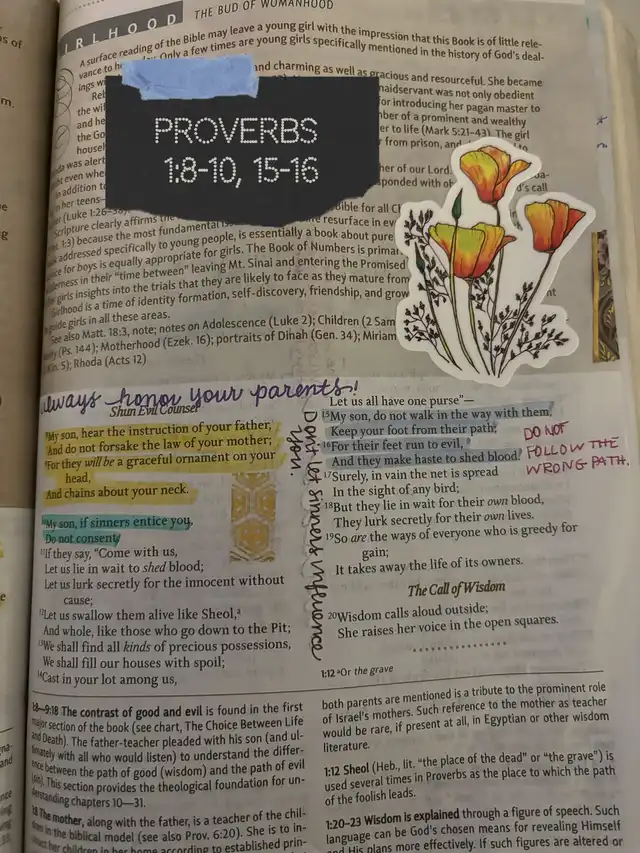 IRLHOOD THE BUD OF WOMANHOOD
A surface reading of the Bible may leave a young girl with the impression that this Book is of little rele-
vance to Only a few times are young girls specifically mentioned in the history of God's deal-
ings and charming as well as gracious and resourceful. She became
naidservant was not only obedient
the wil for introducing her pagan master to
and he nber of a prominent and wealthy
the Go er to life (Mark 5:21–43). The girl
househ r from prison, and
da was alert
ight even whe her of our Lord
addition to sponded with ob d's call
her teens—
er (Luke 1:26–38), Bible for all Ch
Scripture clearly affirms the resurface in eve
1:3) because the most fundamental
addressed specifically to young people, is essentially a book about pare
ce for boys is equally appropriate for girls. The Book of Numbers is primar
derness in their "time between" leaving Mt. Sinai and entering the Promised
girls insights into the trials that they are likely to face as they mature from
Girlhood is a time of identity formation, self-discovery, friendship, and grow nt
guide girls in all these areas.
See also Matt. 18:3, note; notes on Adolescence (Luke 2); Children (2 Sam
(Ps. 144); Motherhood (Ezek. 16); portraits of Dinah (Gen. 34); Miriam
Kin. 5); Rhoda (Acts 12)
PROVERBS
1:8-10, 15-16
always honor your parents!
Shun Evil Counsel
8My son, hear the instruction of your father,
And do not forsake the law of your mother;
9For they will be a graceful ornament on your
head,
And chains about your neck.
10My son, if sinners entice you,
Do not consent.
11If they say, "Come with us,
Let us lie in wait to shed blood;
Let us lurk secretly for the innocent without
cause;
12Let us swallow them alive like Sheol,a
And whole, like those who go down to the Pit;
13We shall find all kinds of precious possessions,
We shall fill our houses with spoil;
14Cast in your lot among us,
Don't let sinners influence
you.
Let us all have one purse"—
15My son, do not walk in the way with them,
Keep your foot from their path;
16For their feet run to evil,
And they make haste to shed blood.
17Surely, in vain the net is spread
In the sight of any bird;
18But they lie in wait for their own blood,
They lurk secretly for their own lives.
19So are the ways of everyone who is greedy for
gain;
It takes away the life of its owners.
DO NOT
FOLLOW THE
WRONG PATH.
The Call of Wisdom
20Wisdom calls aloud outside;
She raises her voice in the open squares.
1:12 aOr the grave
1:8–9:18 The contrast of good and evil is found in the first
major section of the book (see chart, The Choice Between Life
and Death). The father-teacher pleaded with his son (and ul-
timately with all who would listen) to understand the differ-
ence between the path of good (wisdom) and the path of evil
(sin). This section provides the theological foundation for un-
derstanding chapters 10—31.
1:8 The mother, along with the father, is a teacher of the chil-
dren in the biblical model (see also Prov. 6:20). She is to in-
struct her children in her home according to established prin-
both parents are mentioned is a tribute to the prominent role
of Israel's mothers. Such reference to the mother as teacher
would be rare, if present at all, in Egyptian or other wisdom
literature.
1:12 Sheol (Heb., lit. "the place of the dead" or "the grave") is
used several times in Proverbs as the place to which the path
of the foolish leads.
1:20–23 Wisdom is explained through a figure of speech. Such
language can be God's chosen means for revealing Himself
and His plans more effectively. If such figures are altered or